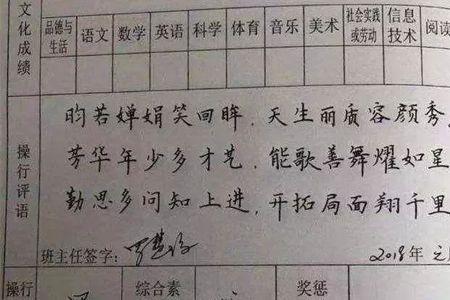 文化成绩
品德与生活 语文 数学 英语 科学 体育 音乐 美术 社会实践或劳动 信息技术 阅读
操行评语
昀若婵娟笑回眸，天生丽质容颜秀，
芳华年少多才艺，能歌善舞耀如星
勤思多问知上进，开拓局面翔千里
班主任签字： 2018年
操行 综合素 奖惩